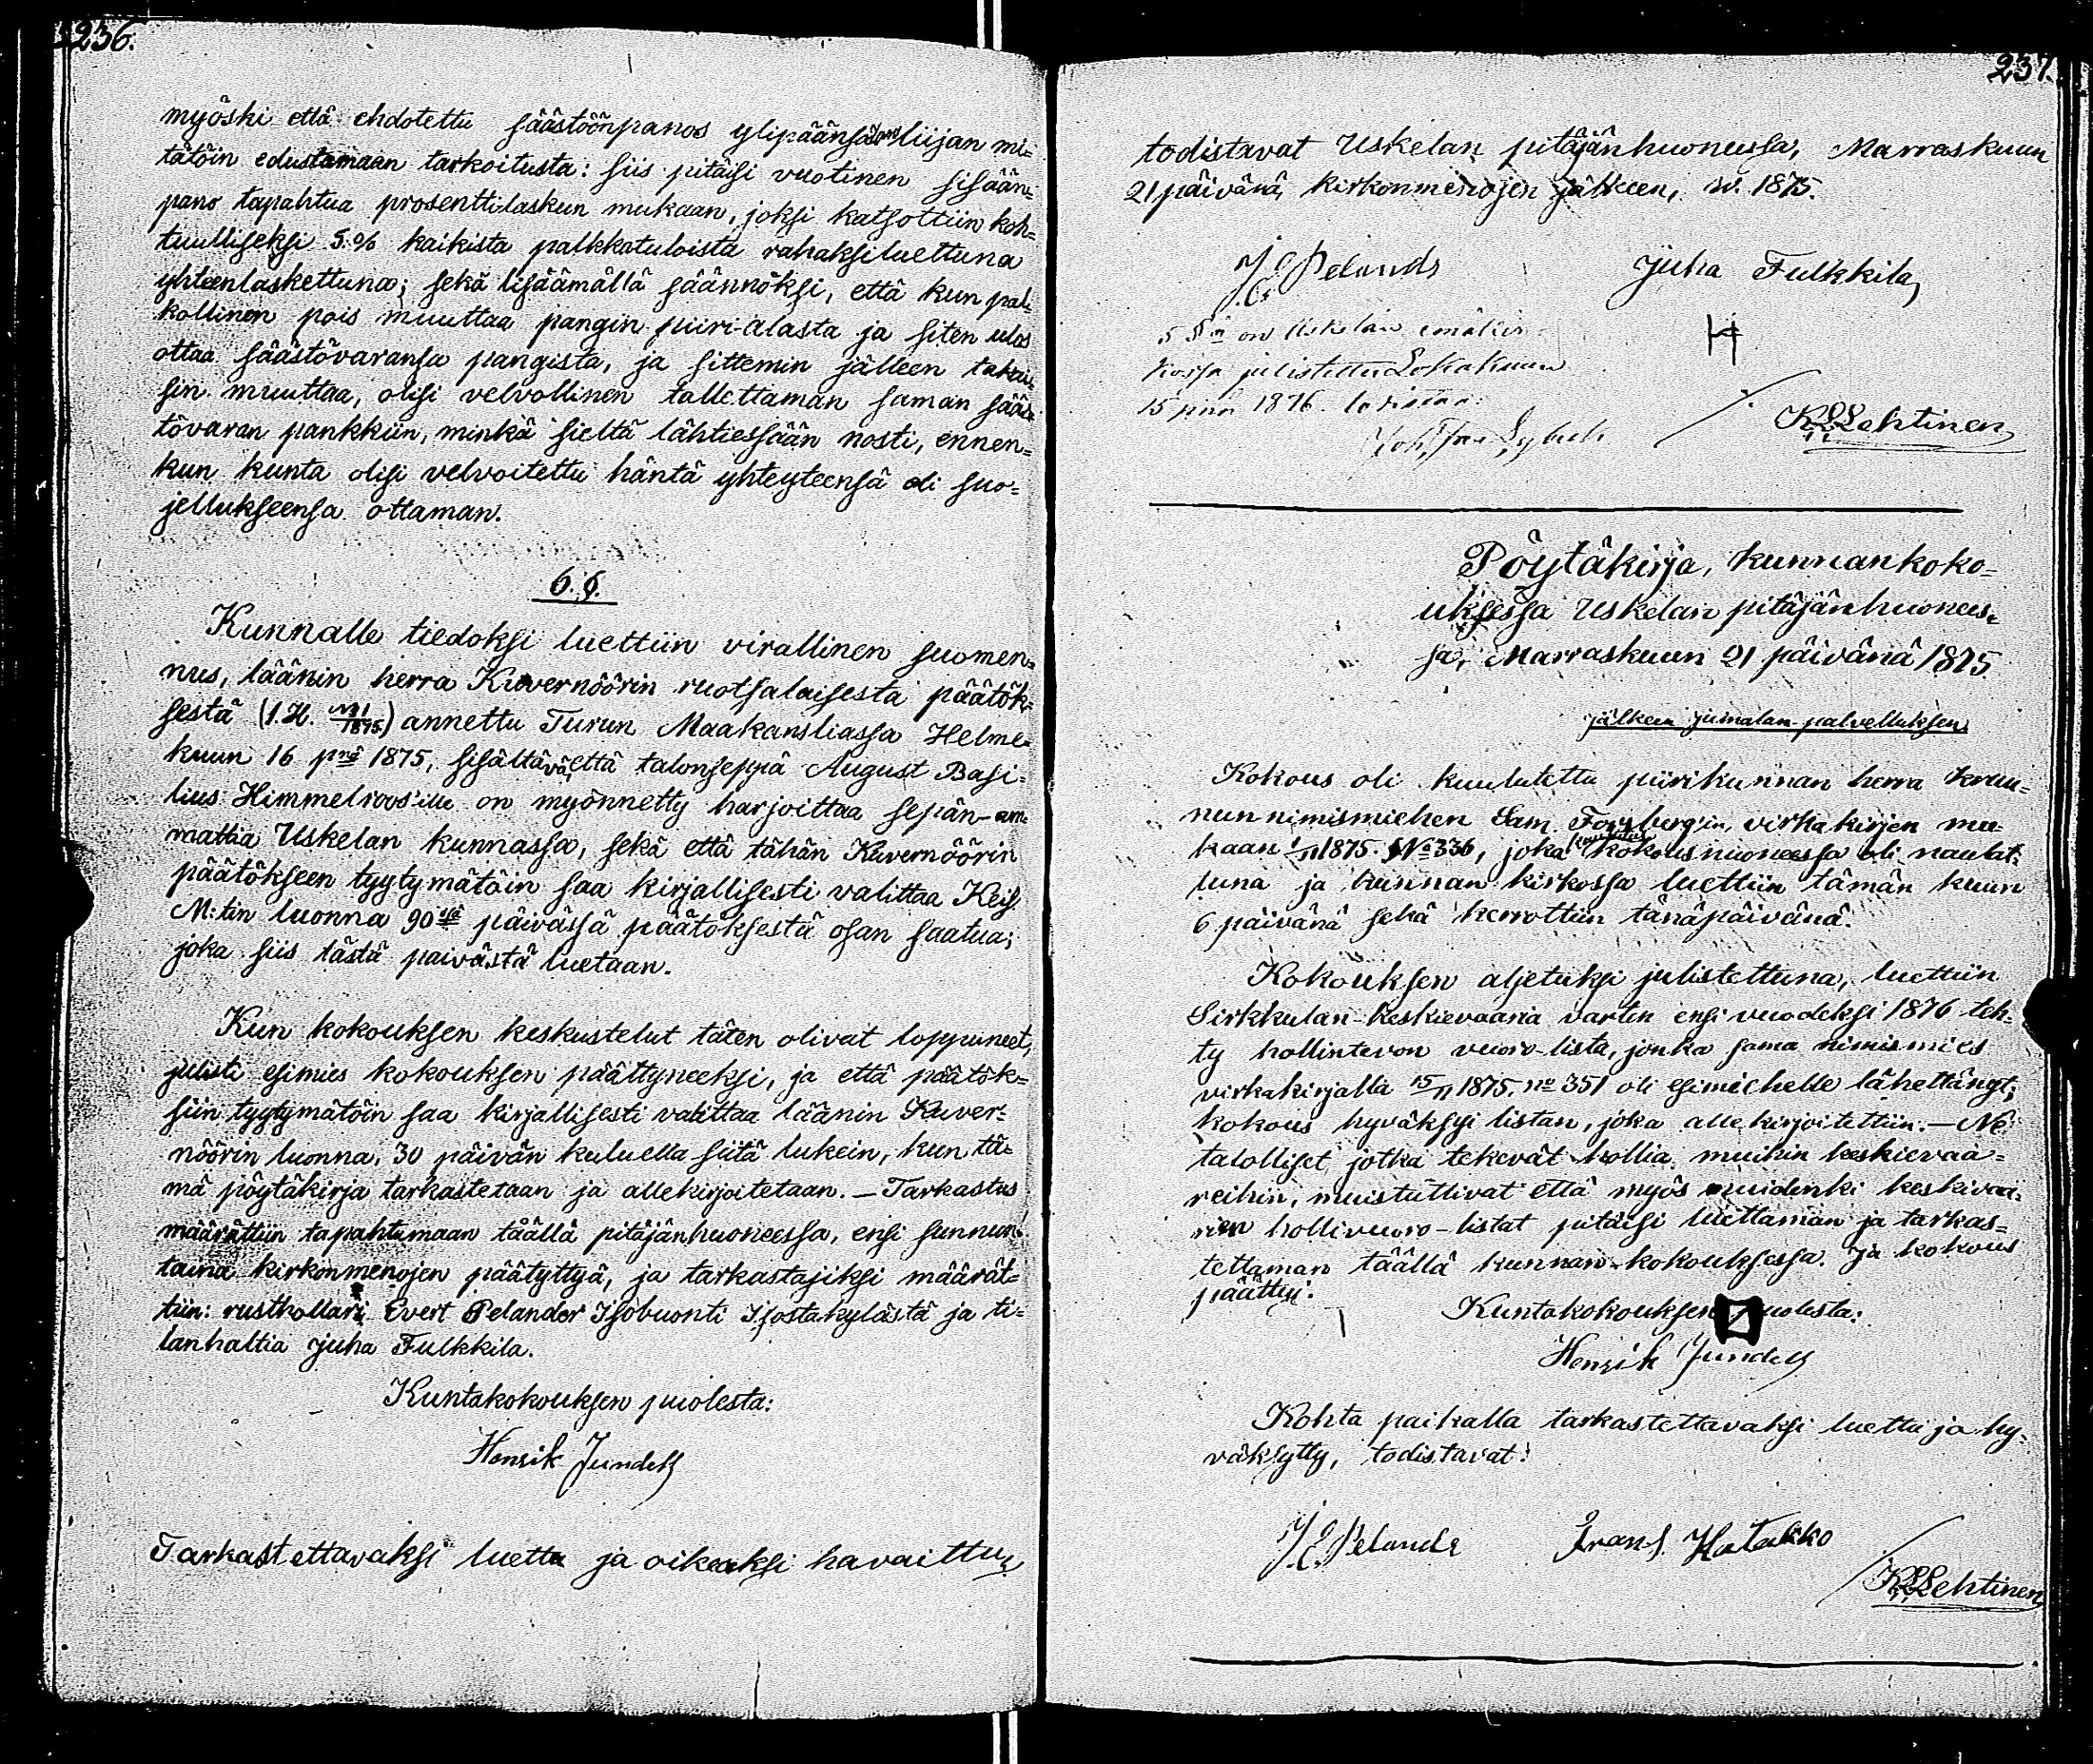 236.
myöski että ehdotettu säästöönpanos ylipäänsä on liijan mi=
tätöin edustamaan tarkoitusta: siis pitäisi vuotinen sisään=
pano tapahtua prosenttilaskun mukaan, joksi katsottiin koh=
tuulliseksi 5.% kaikista palkkatuloista rahaksiluettuna
yhteenlaskettuna; sekä lisäämällä säännöksi, että kun pal=
kollinen pois muuttaa pangin piiri-alasta ja siten ulos
ottaa säästövaransa pangista, ja sittemin jälleen takai=
sin muuttaa, olisi velvollinen tallettaman saman sääs=
tövaran pankkiin, minkä sieltä lähtiessään nosti, ennen=
kun kunta olisi velvoitettu häntä yhteyteensä eli suo=
jellukseensa ottaman.
6. §.
Kunnalle tiedoksi luettiin virallinen suomen=
nus, läänin herra Kuvernöörin ruotsalaisesta päätök=
sestä (I.H. No 1/1875.) annettu Turun Maakansliassa Helme=
kuun 16 pnä 1875, sisältävä, että talonseppä August Basi=
lius Himmelroos'ille on myönnetty harjoittaa sepän-am=
mattia Uskelan kunnassa, sekä että tähän Kuvernöörin
päätökseen tyytymätöin saa kirjallisesti valittaa Keis.
M:tin luonna 90ssä päivässä päätöksestä osan saatua;
joka siis tästä paivästä luetaan.
Kun kokouksen keskustelut täten olivat loppuneet,
julisti esimies kokouksen päättyneeksi, ja että päätök=
siin tyytymätöin saa kirjallisesti valittaa läänin Kuver=
nöörin luonna, 30 päivän kuluella siitä lukein, kun tä=
mä pöytäkirja tarkastetaan ja allekirjoitetaan. — Tarkastus
määrättiin tapahtumaan täällä pitäjänhuoneessa, ensi sunnun=
taina kirkonmenojen päätyttyä, ja tarkastajiksi määrät=
tiin: rusthollari Evert Pelander Isobuonti Isostakylästä ja ti=
lanhaltia Juha Fulkkila.
Kuntakokouksen puolesta:
Henrik Jundell
Tarkastettavaksi luettu ja oikeaksi havaittu,
237.
todistavat Uskelan pitäjänhuoneessa, Marraskuun
21 päivänä, kirkonmenojen jälkeen, v. 1875.
J. E. Pelander Juha Fulkkila,
5 § on Uskelan emäkir=
kossa julistettu Lokakuun
15 pnä 1876. todistaa:
K L Lehtinen
Pöytäkirja, kunnankoko=
uksessa Uskelan pitäjänhuonees=
sa, Marraskuun 21 päivänä 1875
jälkeen jumalan-palvelluksen
Kokous oli kuulutettu piirikunnan herra kruu=
nun nimismiehen Sam. Forsberg'in, virkakirjen mu=
kaan 1/11 1875. No 336, joka kokoushuoneessa oli naulat=
tuna ja kunnan kirkossa luettiin tämän kuun
6 päivänä sekä kerrottiin tänäpäivänä.
Kokouksen aljetuksi julistettuna, luettiin
Sirkkulan-keskievaaria varten ensi vuodeksi 1876 teh=
ty hollintevon vuoro-lista, jonka sama nimismies
virkakirjalla 15/11 1875. no 351 oli esimiehelle lähettänyt;
kokous hyväksyi listan, joka allekirjoitettiin. — Ne
talolliset, jotka tekevät hollia muihin keskievaa=
reihin, muistuttivat että myös muidenki keskivaa=
rien hollivuoro-listat pitäisi luettaman ja tarkas=
tettaman täällä kunnan-kokouksessa. Ja kokous
päättyi.
Kuntakokouksen puolesta:
Henrik Jundell
Kohta paikalla tarkastettavaksi luettu ja hy=
väksytty, todistavat:
J. E. Pelander Frans. Hatakko
K L Lehtinen